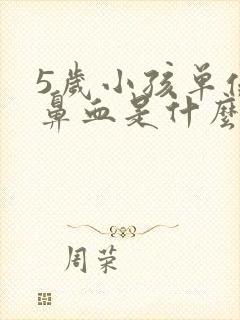 5歲小孩单
鼻血是什麼
周荣